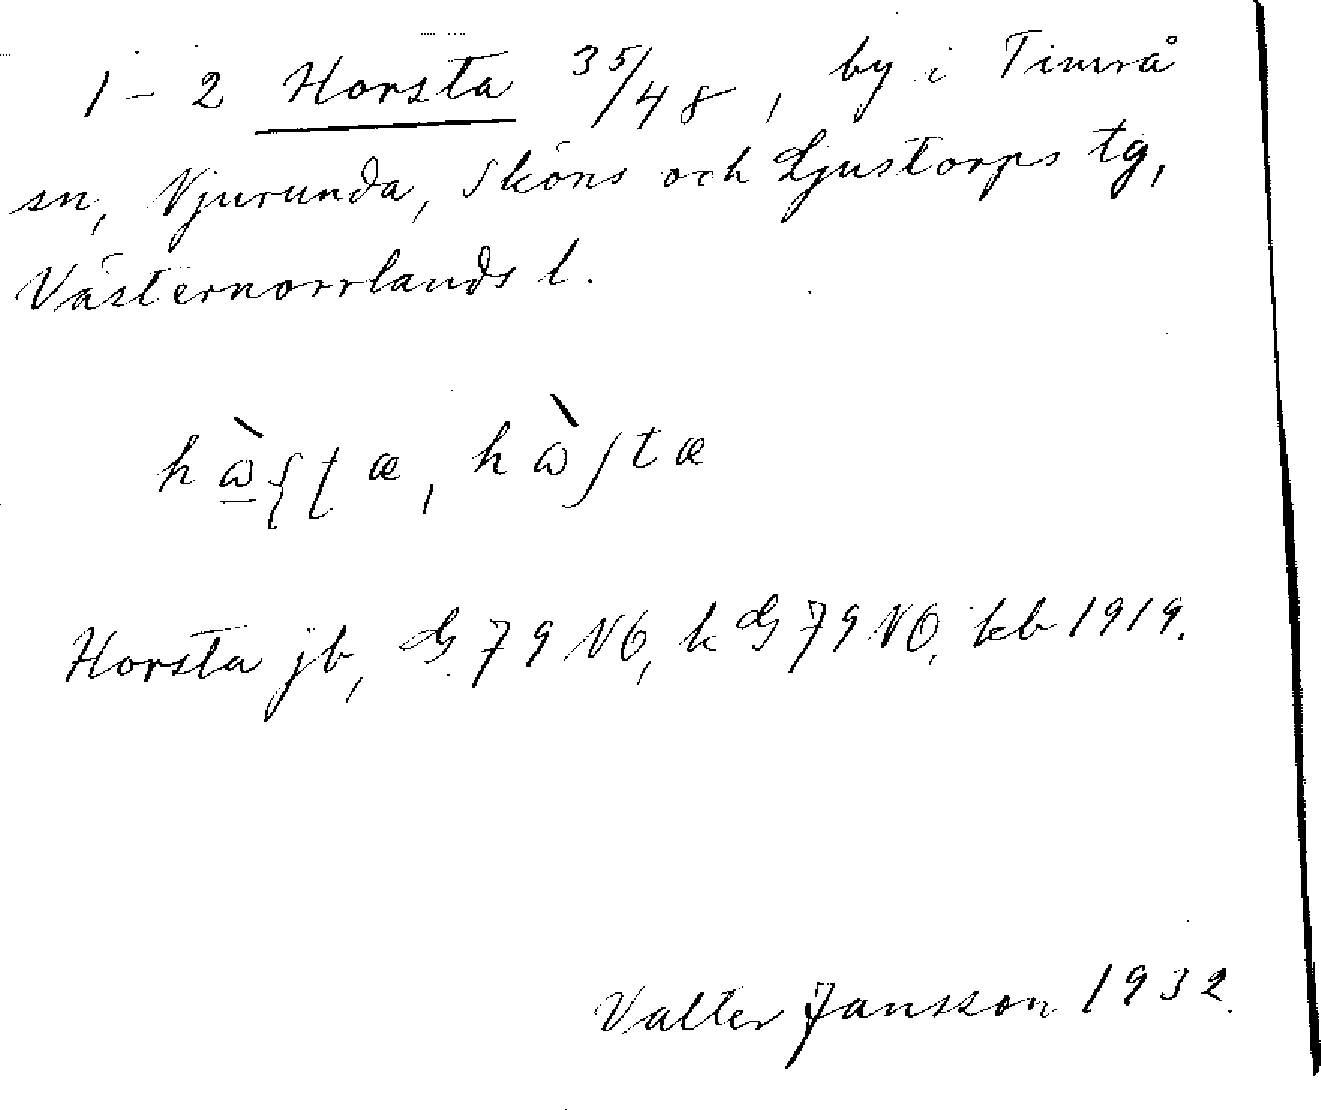 1-2 Horsta 35/48, by i Timrå
sn, Njurunda, Sköns och Ljustorps tg,
Västernorrlands l.
Horsta jb, G 79 NO, k G 79 NO, kb 1919.
Valter Jansson 1932.